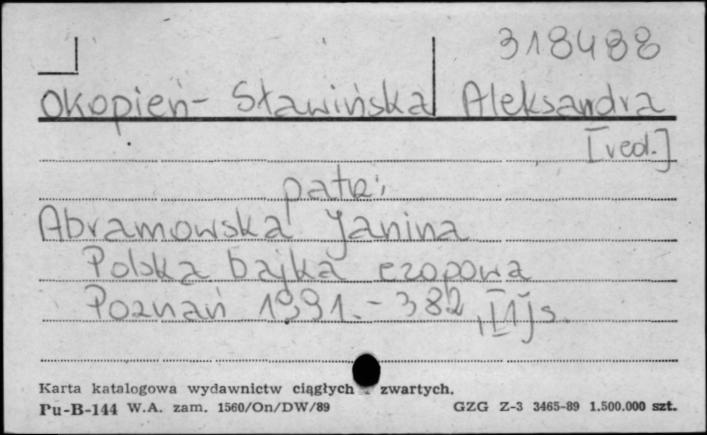 318488
Okopień-Sławińska Aleksandra
[red.]
patrz:
Abramowska Janina
Polska bajka ezopowa
Poznań 1991. - 382, [1] s.
Karta katalogowa wydawnictw ciągłych i zwartych.
Pu-B-144 W.A. zam. 1560/On/DW/89 GZG Z-3 3465-89 1.500.000 szt.